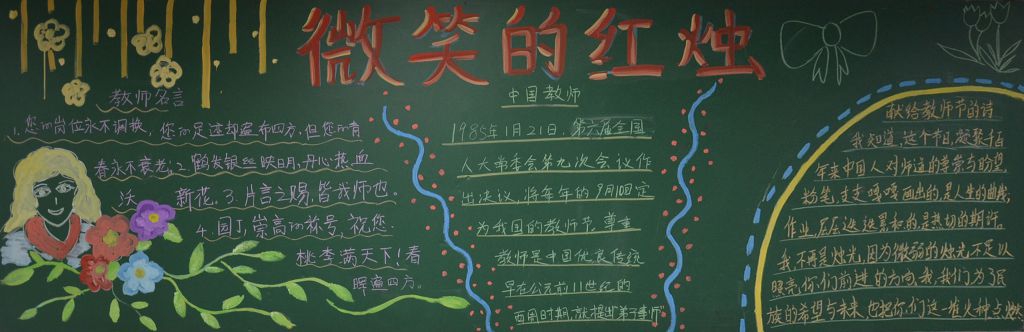 微笑的红烛
教师名言
1.您的岗位永不调换,您的足迹却遍布四方,但您的青
春永不衰老;2.鹤发银丝映日月,丹心热血
沃 新花。3.片言之赐,皆我师也。
4.园丁,崇高的称号,祝您
桃李满天下!看
晖遍四方。
中国教师
1985年1月21日,第六届全国
人大常委会第九次会议作
出决议,将每年的9月10日定
为我国的教师节。尊重
教师是中国优良传统
早在公元前11世纪的
西周时期,就提出"弟子事师"
献给教师节的诗
我知道,这个节日,凝聚千百
年来中国人对师道的尊崇与盼望
粉笔,支支嘎嘎画出的是人生的曲线,
作业,层层迭迭累积的是热切的期许。
我不再是烛光,因为微弱的烛光不足以
照亮你们前进的方向,我我们为了民
族的希望与未来,也把你们这一堆火种点燃